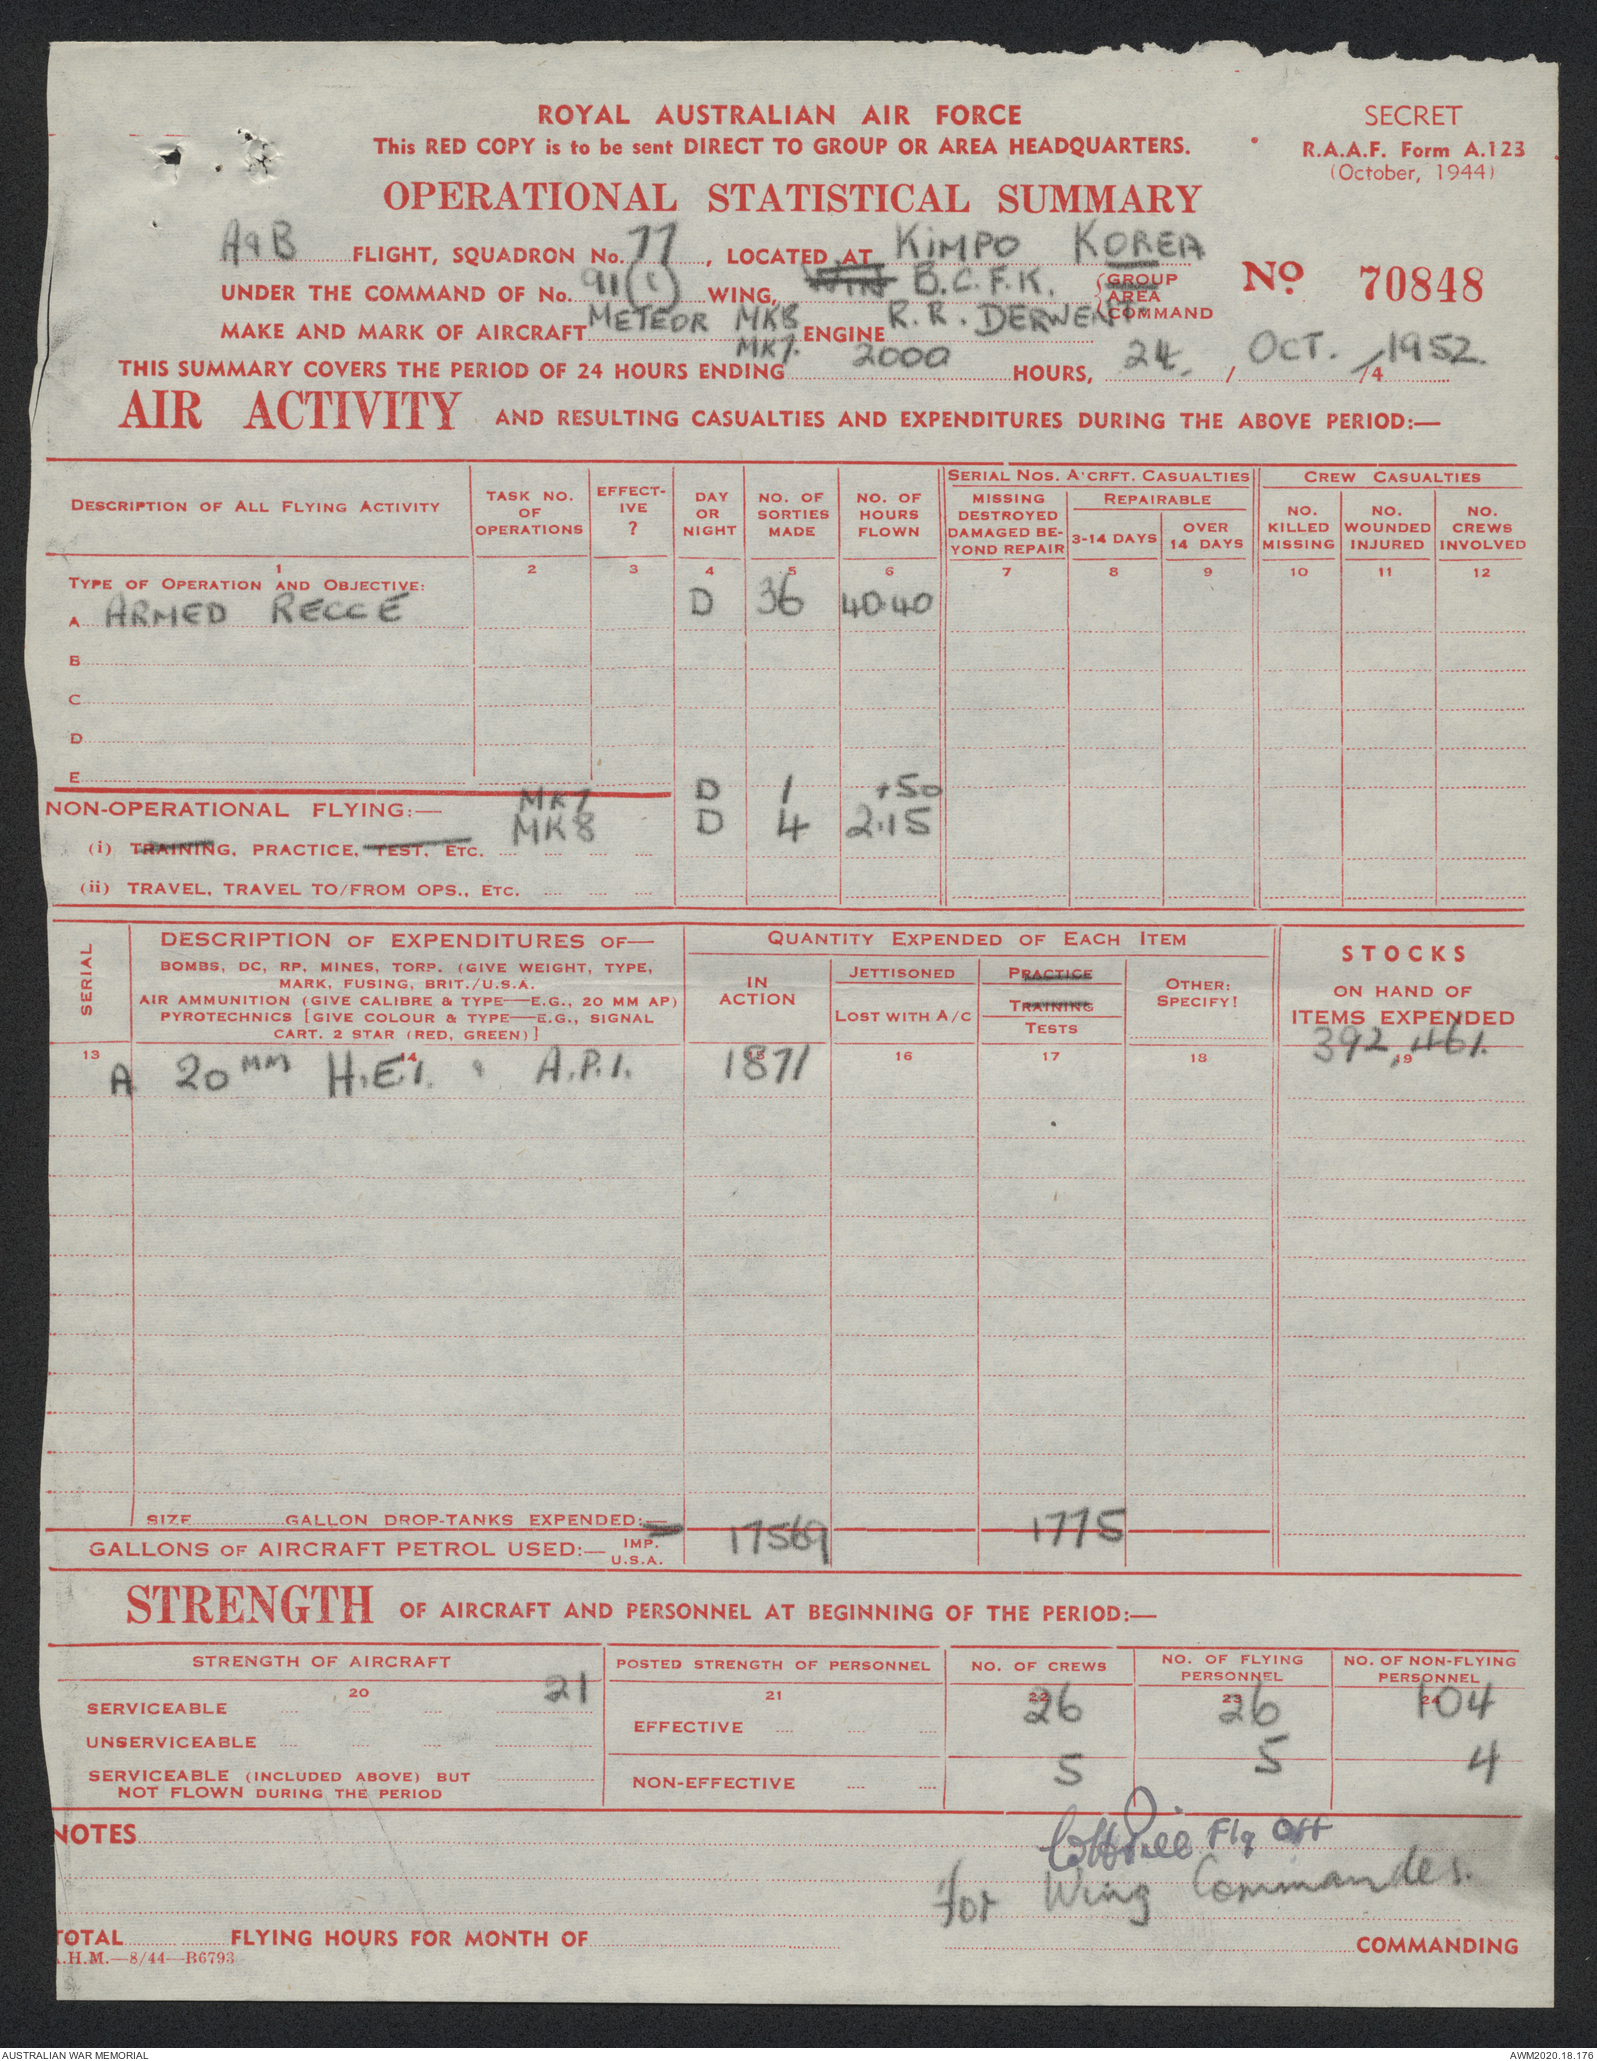 ROYAL AUSTRALIAN AIR FORCE
SECRET
This RED COPY is to be sent DIRECT TO GROUP OR AREA HEADQUARTERS.
R.A.A.F. Form A.123
(October, 1944)
OPERATIONAL STATISTICAL SUMMARY
A & B FLIGHT, SQUADRON No. 77, LOCATED AT KIMPO KOREA
UNDER THE COMMAND OF No. 91(C) WING, B.C.F.K. GROUP AREA COMMAND
No 70848
MAKE AND MARK OF AIRCRAFT METEOR MK8 MK7. ENGINE R.R. DERWENT
THIS SUMMARY COVERS THE PERIOD OF 24 HOURS ENDING 2000 HOURS, 24. / OCT. /1952. /4
AIR ACTIVITY AND RESULTING CASUALTIES AND EXPENDITURES DURING THE ABOVE PERIOD:—
DESCRIPTION OF ALL FLYING ACTIVITY
TASK NO. OF OPERATIONS
EFFECTIVE ?
DAY OR NIGHT
NO. OF SORTIES MADE
NO. OF HOURS FLOWN
SERIAL NOS. A'CRFT. CASUALTIES
MISSING DESTROYED DAMAGED BEYOND REPAIR
REPAIRABLE
3-14 DAYS
OVER 14 DAYS
CREW CASUALTIES
NO. KILLED MISSING
NO. WOUNDED INJURED
NO. CREWS INVOLVED
1 2 3 4 5 6 7 8 9 10 11 12
TYPE OF OPERATION AND OBJECTIVE:
A ARMED RECCE D 36 40.40
B
C
D
E
NON-OPERATIONAL FLYING:— MK7 D 1 +50
MK8 D 4 2.15
(i) TRAINING, PRACTICE, TEST, ETC.
(ii) TRAVEL, TRAVEL TO/FROM OPS., ETC.
SERIAL
DESCRIPTION OF EXPENDITURES OF—
BOMBS, DC, RP, MINES, TORP. (GIVE WEIGHT, TYPE,
MARK, FUSING, BRIT./U.S.A.
AIR AMMUNITION (GIVE CALIBRE & TYPE—E.G., 20 MM AP)
PYROTECHNICS [GIVE COLOUR & TYPE—E.G., SIGNAL
CART. 2 STAR (RED, GREEN)]
QUANTITY EXPENDED OF EACH ITEM
IN ACTION
JETTISONED
LOST WITH A/C
PRACTICE
TRAINING
TESTS
OTHER: SPECIFY!
STOCKS
ON HAND OF
ITEMS EXPENDED
13 14 15 16 17 18 19
A 20 MM H.E.I. & A.P.I. 1871 392,461.
SIZE GALLON DROP-TANKS EXPENDED:—
GALLONS OF AIRCRAFT PETROL USED:— IMP. U.S.A. 17569 1775
STRENGTH OF AIRCRAFT AND PERSONNEL AT BEGINNING OF THE PERIOD:—
STRENGTH OF AIRCRAFT
POSTED STRENGTH OF PERSONNEL
NO. OF CREWS
NO. OF FLYING PERSONNEL
NO. OF NON-FLYING PERSONNEL
20 21 22 23 24
SERVICEABLE 21
EFFECTIVE 26 26 104
UNSERVICEABLE
SERVICEABLE (INCLUDED ABOVE) BUT
NOT FLOWN DURING THE PERIOD
NON-EFFECTIVE 5 5 4
NOTES
Flg Off
for Wing Commander.
TOTAL FLYING HOURS FOR MONTH OF COMMANDING
.H.M.—8/44—R6793
AUSTRALIAN WAR MEMORIAL
AWM2020.18.176